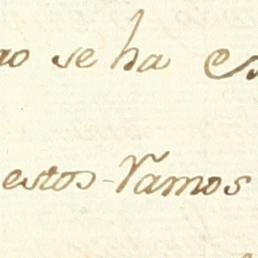 no se ha es
estos Ramos